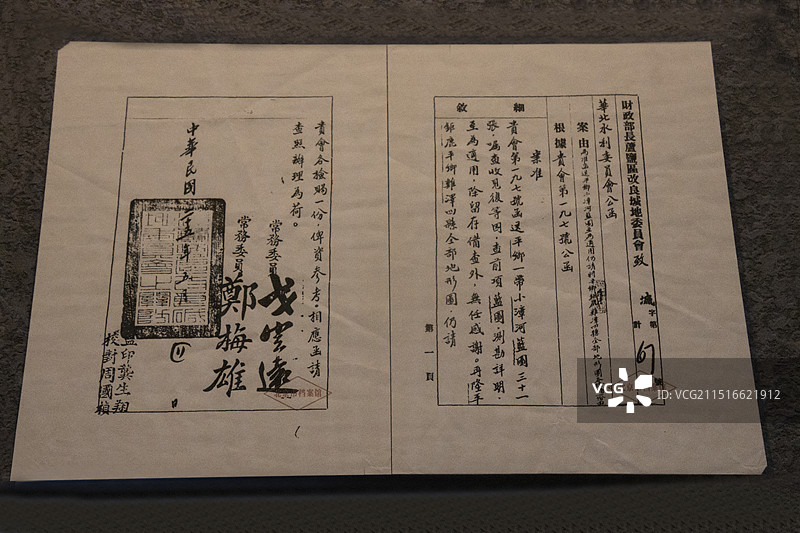 財政部長蘆鹽區改良堿地委員會致
字第
號
計
華北水利委員會公函
案由
根據貴會第一九七號公函
敘
糊
案准
貴會第一九七號函送平鄉一帶小漳河藍圖三十一
張，囑查收見復等因，查前項藍圖，測勘詳明，
至為適用，除留存備查外，無任感謝。再隆平
鉅鹿平鄉雞澤四縣全部地形圖，仍請
第一頁
貴會各檢賜一份，俾資參考。相應函請
查照辦理為荷。
常務委員
常務委員 鄭梅雄
中華民國二十五年五月
日
監印龔生翔
校對周國楨
北京市档案馆
VCG
ID: VCG211516621912